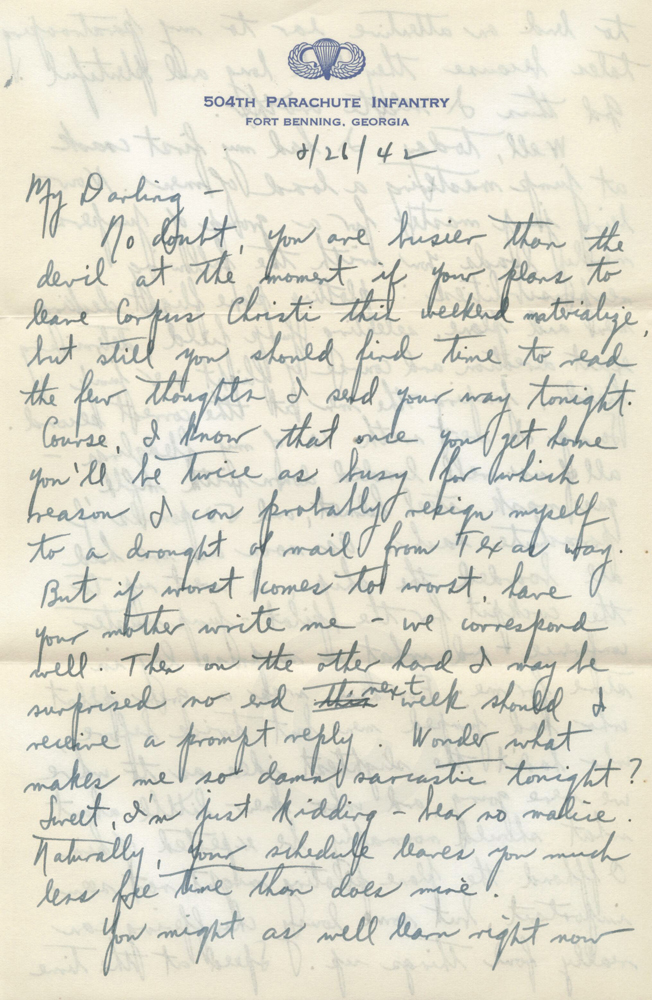 504TH PARACHUTE INFANTRY
FORT BENNING, GEORGIA
8/26/42
My Darling –
No doubt, you are busier than the
devil at the moment if your plans to
leave Corpus Christi this weekend materialize,
but still you should find time to read
the few thoughts I send your way tonight.
Course, I know that once you get home
you'll be twice as busy for which
reason I can probably resign myself
to a drought of mail from Texas way.
But if worst comes to worst, have
your mother write me – we correspond
well. Then on the other hand I may be
surprised no end this next week should I
receive a prompt reply. Wonder what
makes me so damn sarcastic tonight?
Sweet, I'm just kidding – bear no malice.
Naturally, your schedule leaves you much
less free time than does mine.
You might as well learn right now